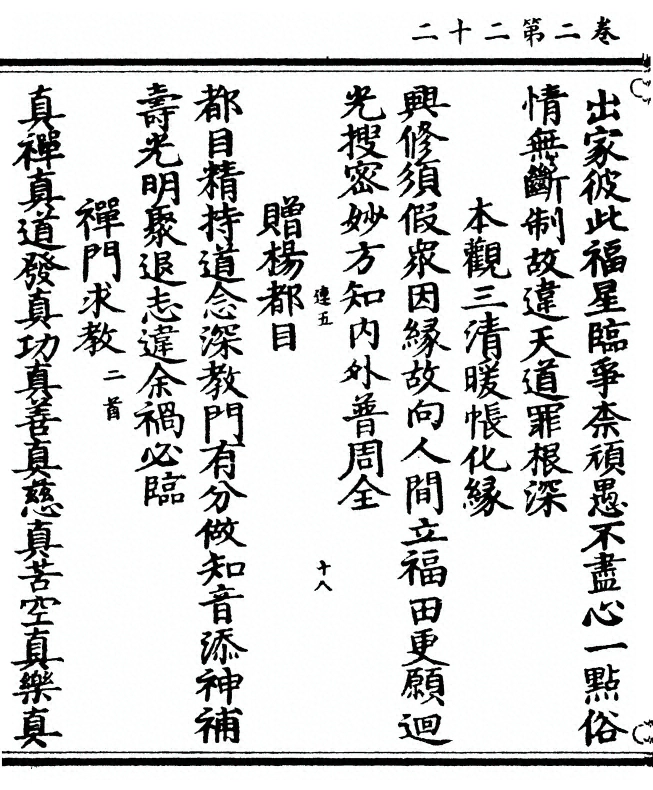 卷二第二十二
出家彼此福星臨爭柰頑愚不盡心一點俗
情無斷制故違天道罪根深
本觀三清暖帳化緣
興修須假眾因緣故向人間立福田更願迴
光搜密妙方知內外普周全
連五
十八
贈楊都目
都目精持道念深教門有分做知音添神補
壽光明聚退志違余禍必臨
禪門求教二首
真禪真道發真功真善真慈真苦空真樂真